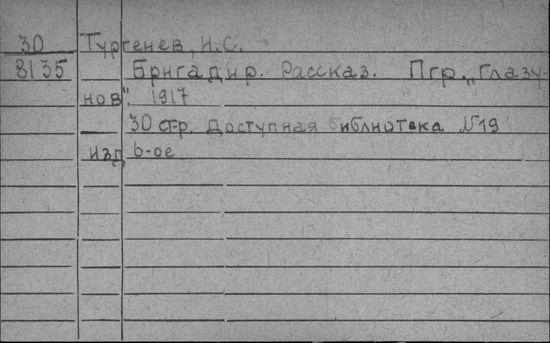 30 Тургенев, И.С.
8135 Бригадир. Рассказ. Пгр. „Глазу-
нов". 1917
30 стр. Доступная библиотека N19
изд 6-ое